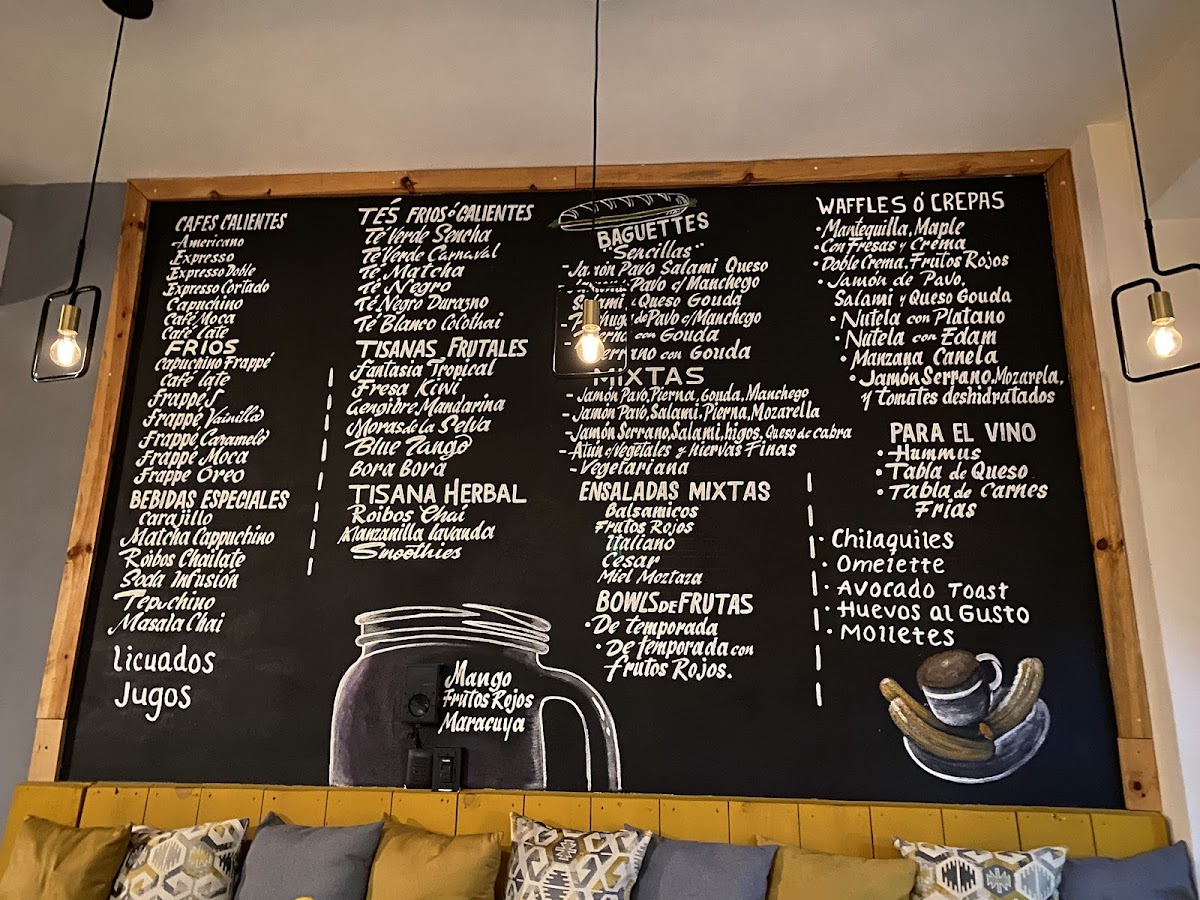 CAFES CALIENTES
Americano
Expresso
Expresso Doble
Expresso Cortado
Capuchino
Café Moca
Café late
FRIOS
Capuchino Frappé
Café late
Frappé's
Frappé Vainilla
Frappé Caramelo
Frappé Moca
Frappé Oreo
BEBIDAS ESPECIALES
Carajillo
Matcha Cappuchino
Roibos Chailate
Soda Infusión
Tepuchino
Masala Chai
Licuados
Jugos
TÉS FRIOS ó CALIENTES
Té Verde Sencha
Té Verde Carnaval
Té Matcha
Té Negro
Té Negro Durazno
Té Blanco Colothai
TISANAS FRUTALES
Fantasia Tropical
Fresa Kiwi
Gengibre Mandarina
Moras de la Selva
Blue Tango
Bora Bora
TISANA HERBAL
Roibos Chai
Manzanilla lavanda
Smoothies
Mango
Frutos Rojos
Maracuya
BAGUETTES
"Sencillas"
- Jamón Pavo Salami Queso
- Jamón Pavo c/ Manchego
Salami y Queso Gouda
- de Pavo c/ Manchego
- Pierna con Gouda
- Serrano con Gouda
MIXTAS
- Jamón Pavo, Pierna, Gouda, Manchego
- Jamón Pavo, Salami, Pierna, Mozarella
- Jamón Serrano, Salami, higos, Queso de cabra
- Atun c/ Vegetales y hiervas Finas
- Vegetariana
ENSALADAS MIXTAS
Balsamicos
Frutos Rojos
Italiano
Cesar
Miel Moztaza
BOWLS DE FRUTAS
• De temporada
• De temporada con
Frutos Rojos.
WAFFLES Ó CREPAS
• Mantequilla, Maple
• Con Fresas y Crema
• Doble Crema, Frutos Rojos
• Jamón de Pavo,
Salami y Queso Gouda
• Nutela con Platano
• Nutela con Edam
• Manzana Canela
• Jamón Serrano, Mozarela,
y tomates deshidratados
PARA EL VINO
• Hummus
• Tabla de Queso
• Tabla de Carnes
Frias
• Chilaquiles
• Omelette
• Avocado Toast
• Huevos al Gusto
• Molletes